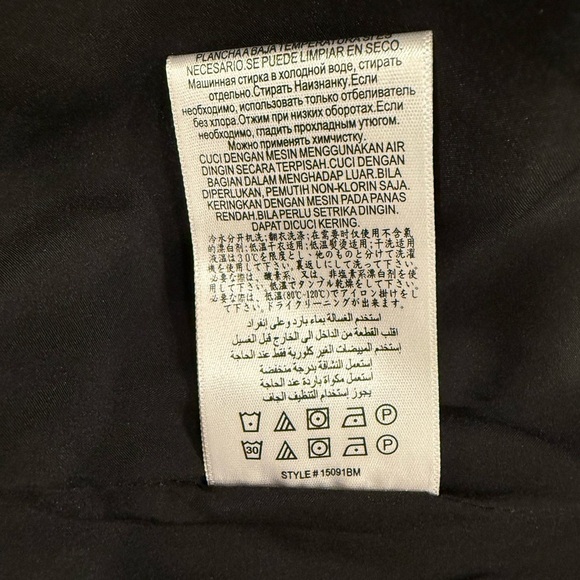 PLANCHA A BAJA TEMPERATURA SI ES
NECESARIO.SE PUEDE LIMPIAR EN SECO.
Машинная стирка в холодной воде, стирать
отдельно.Стирать Наизнанку.Если
необходимо, использовать только отбеливатель
без хлора.Отжим при низких оборотах.Если
необходимо, гладить прохладным утюгом.
Можно применять химчистку.
CUCI DENGAN MESIN MENGGUNAKAN AIR
DINGIN SECARA TERPISAH.CUCI DENGAN
BAGIAN DALAM MENGHADAP LUAR.BILA
DIPERLUKAN, PEMUTIH NON-KLORIN SAJA.
KERINGKAN DENGAN MESIN PADA PANAS
RENDAH.BILA PERLU SETRIKA DINGIN.
DAPAT DICUCI KERING.
冷水分开机洗;翻衣洗涤;在需要时仅使用不含氯
的漂白剂;低温干衣适用;低温熨烫适用;干洗适用
液温は30℃を限度とし、他のものと分けて洗濯
機を使用して下さい。裏返しにして洗って下さい。
必要な際は、酸素系、又は、非塩素系漂白剤を使
用して下さい。低温でタンブル乾燥をして下さい。
必要な際は、低温(80℃-120℃)でアイロン掛けをし
て下さい。ドライクリーニングが出来ます。
استخدم الغسالة بماء بارد وعلى إنفراد
اقلب القطعة من الداخل الى الخارج قبل الغسيل
استخدم المبيضات الغير كلورية فقط عند الحاجة
استعمل النشافة بدرجة منخفضة
استعمل مكواة باردة عند الحاجة
يجوز إستخدام التنظيف الجاف
P
30 P
STYLE # 15091BM